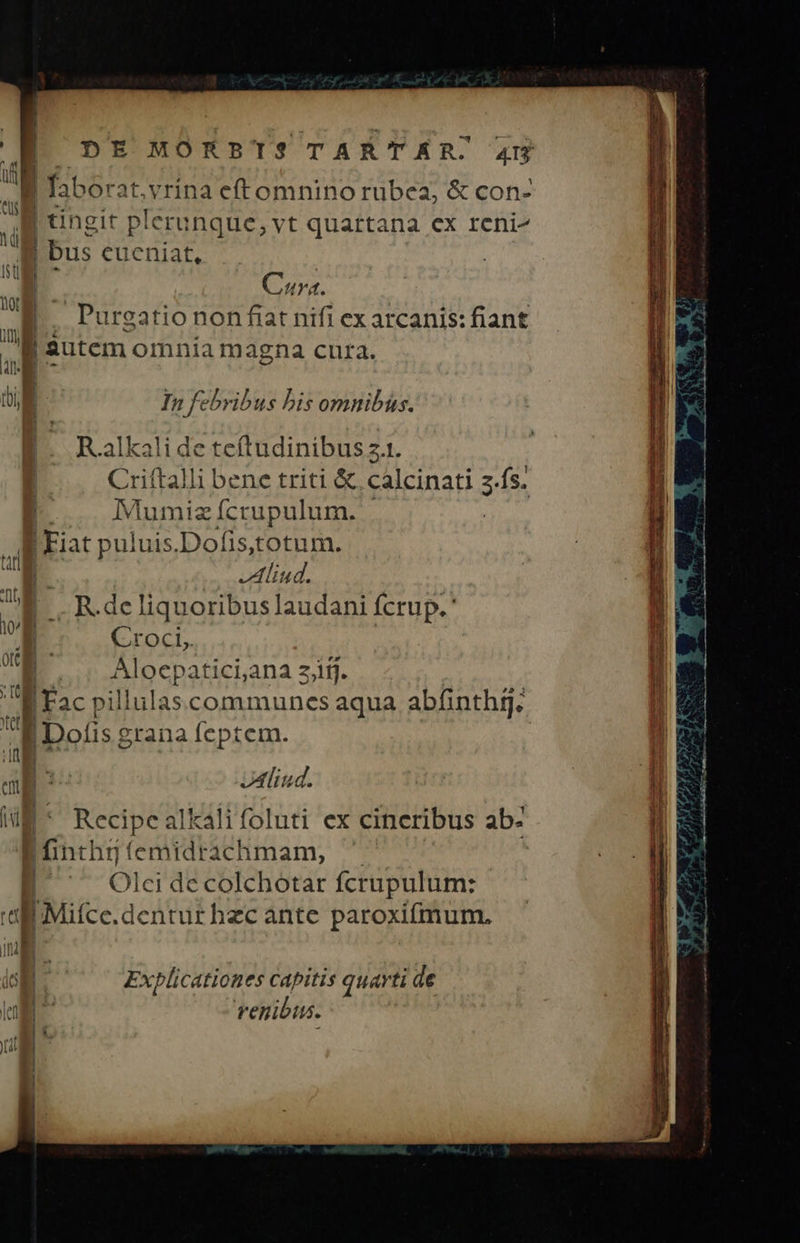 DE MORBIS TARTAR.
ſaborat, vrina eſt omnino rubea, & con-
tingit plerunque, vt quartana ex reni-
bus eueniat.
Cura.
Purgatio non fiat niſi ex arcanis: fiant
autem omnia magna cura.
In febribus his omnibus.
R. alkali de teſtudinibus ʒ.1.
Criſtalli bene triti & calcinati ʒ.ſs.
Mumiæ ſcrupulum.
Fiat puluis. Doſis, totum.
Aliud.
R. de liquoribus laudani ſcrup.
Croci,
Aloepatici, ana ʒ,iij.
Fac pillulas communes aqua abſinthij.
Doſis grana ſeptem.
Aliud.
Recipe alkali ſoluti ex cineribus ab-
ſinthij ſemidrachmam,
Olei de colchotar ſcrupulum:
Miſce. dentur hæc ante paroxiſmum.
Explicationes capitis quarti de
renibus.